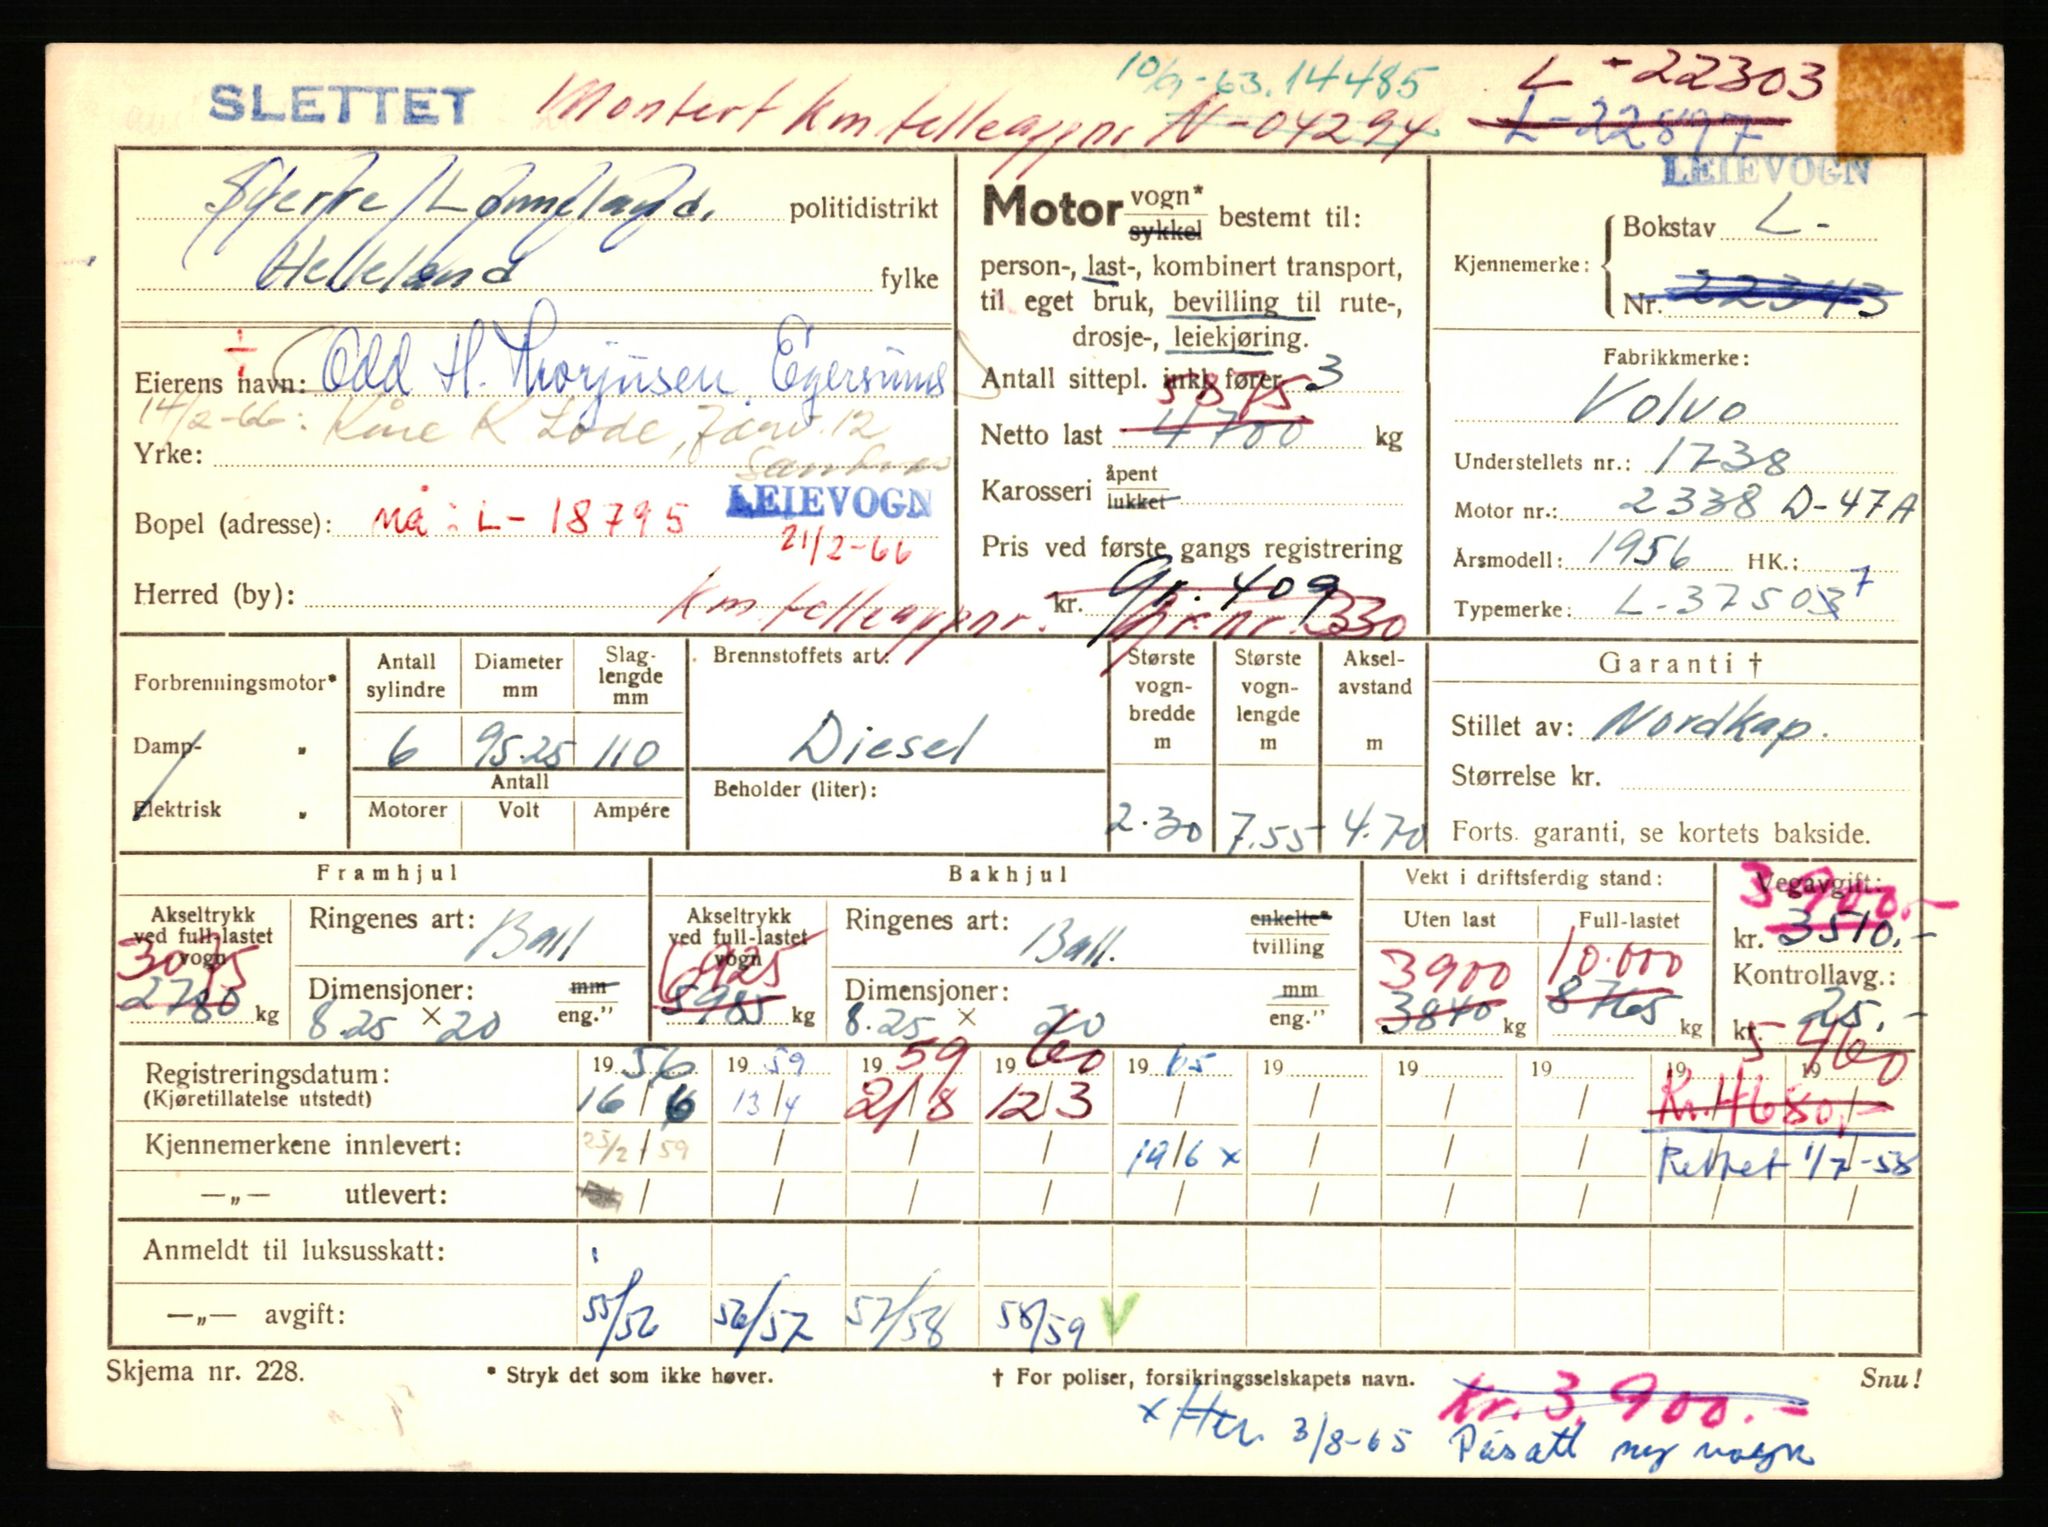 SLETTET Montert km telleapp nr N-04294
10/9-63. 14485
L-22303
L-22897
LEIEVOGN
politidistrikt
Helleland fylke
Eierens navn: Odd H. Thorjusen, Egersund
14/2-66: Kåre K Lode, 12
Yrke:
LEIEVOGN
Bopel (adresse): nå: L-18795
21/2-66
Herred (by):
km. telleapp nr.
Motor vogn* sykkel bestemt til:
person-, last-, kombinert transport,
til eget bruk, bevilling til rute-,
drosje-, leiekjøring.
Antall sittepl. inkl. fører 3
5875
Netto last 4700 kg
Karosseri åpent lukket
Pris ved første gangs registrering
kr. gr. 409
gr. nr. 330
Kjennemerke: Bokstav L-
Nr. 22343
Fabrikkmerke:
Volvo
Understellets nr.: 1738
Motor nr.: 2338 D-47A
Årsmodell: 1956 HK.:
Typemerke: L-37503 7
Forbrenningsmotor*
Damp- "
Elektrisk "
Antall sylindre Diameter mm Slag-lengde mm
6 95.25 110
Antall
Motorer Volt Ampére
Brennstoffets art:
Diesel
Beholder (liter):
Største vogn-bredde m Største vogn-lengde m Aksel-avstand m
2.30 7.55 4.70
Garanti †
Stillet av: Nordkap.
Størrelse kr.
Forts. garanti, se kortets bakside.
Framhjul
Akseltrykk ved full-lastet vogn
3075
2780 kg
Ringenes art: Ball
Dimensjoner: mm eng."
8.25 × 20
Bakhjul
Akseltrykk ved full-lastet vogn
6925
5985 kg
Ringenes art: Ball. enkelte* tvilling
Dimensjoner: mm eng."
8.25 × 20
Vekt i driftsferdig stand:
Uten last Full-lastet
3900 10.000
3840 kg 8765 kg
Vegavgift:
3900.-
kr. 3510.-
Kontrollavg.:
kr. 25.-
5460
Registreringsdatum: 1956 1959 1959 1960 1965 19 19 19 19 19
(Kjøretillatelse utstedt) 16/6 13/4 2/8 12/3 Kr. 4680,-
Kjennemerkene innlevert: 25/2-59 19/6 x Rettet 1/7-58
—„— utlevert:
Anmeldt til luksusskatt:
—„— avgift: 55/56 56/57 57/58 58/59 V
Skjema nr. 228. * Stryk det som ikke høver. † For poliser, forsikringsselskapets navn. Snu!
Kr. 3.900.-
x 3/8-65 Påsatt ny vogn